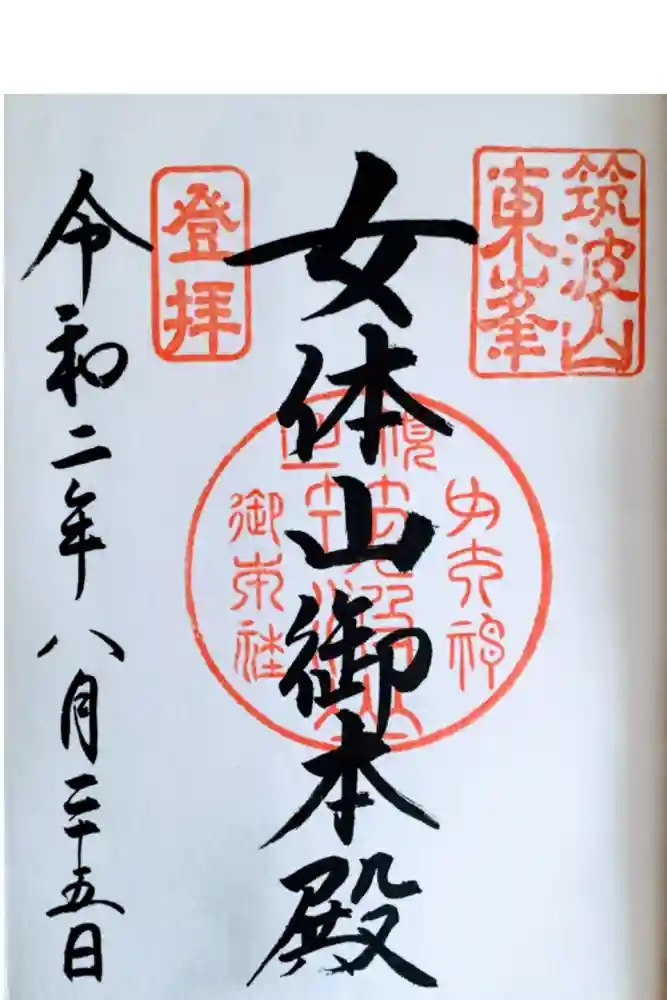 筑波山
東峯
女体山御本殿
登拝
令和二年八月二十五日